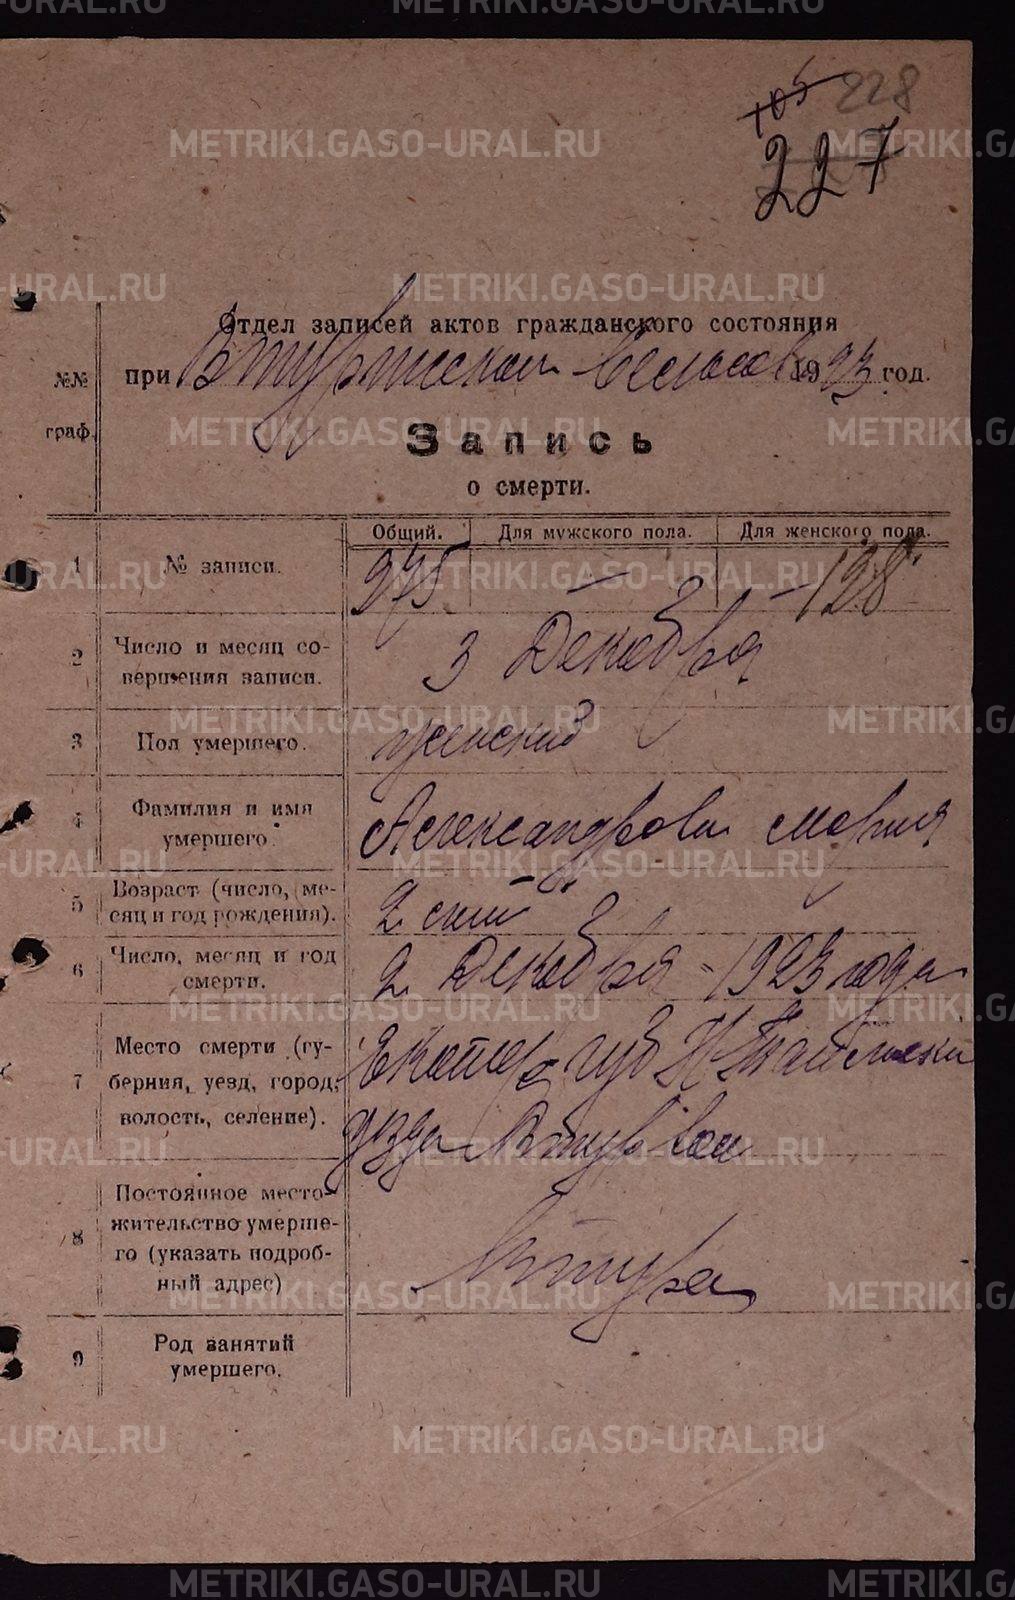 METRIKI.GASO-URAL.RU
105 228
227
Отдел записей актов гражданского состояния
при В Туринском 1923 год.
№№ граф.
Запись
о смерти.
Общий. Для мужского пола. Для женского пола.
1 № записи. 275 — — 128
2 Число и месяц со-
вершения записи. 3 Декабря
3 Пол умершего. женский
4 Фамилия и имя
умершего. Александрова Мария
5 Возраст (число, ме-
сяц и год рождения). 2
6 Число, месяц и год
смерти. 2 Декабря 1923 года
7 Место смерти (гу-
берния, уезд, город,
волость, селение). Екатер губ Н Тагильск
уезда В Тур вол
8 Постоянное место-
жительство умерше-
го (указать подроб-
ный адрес) В Тура
9 Род занятий
умершего.